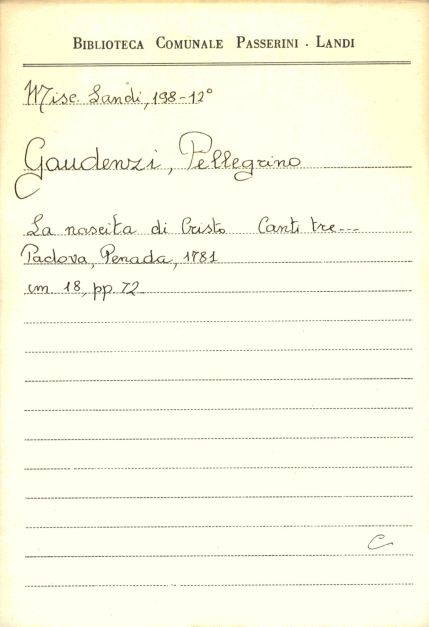 BIBLIOTECA COMUNALE PASSERINI - LANDI
Misc. Landi, 198-12°
Gaudenzi, Pellegrino
La nascita di Cristo Canti tre---
Padova, Penada, 1781
cm. 18, pp. 72
C